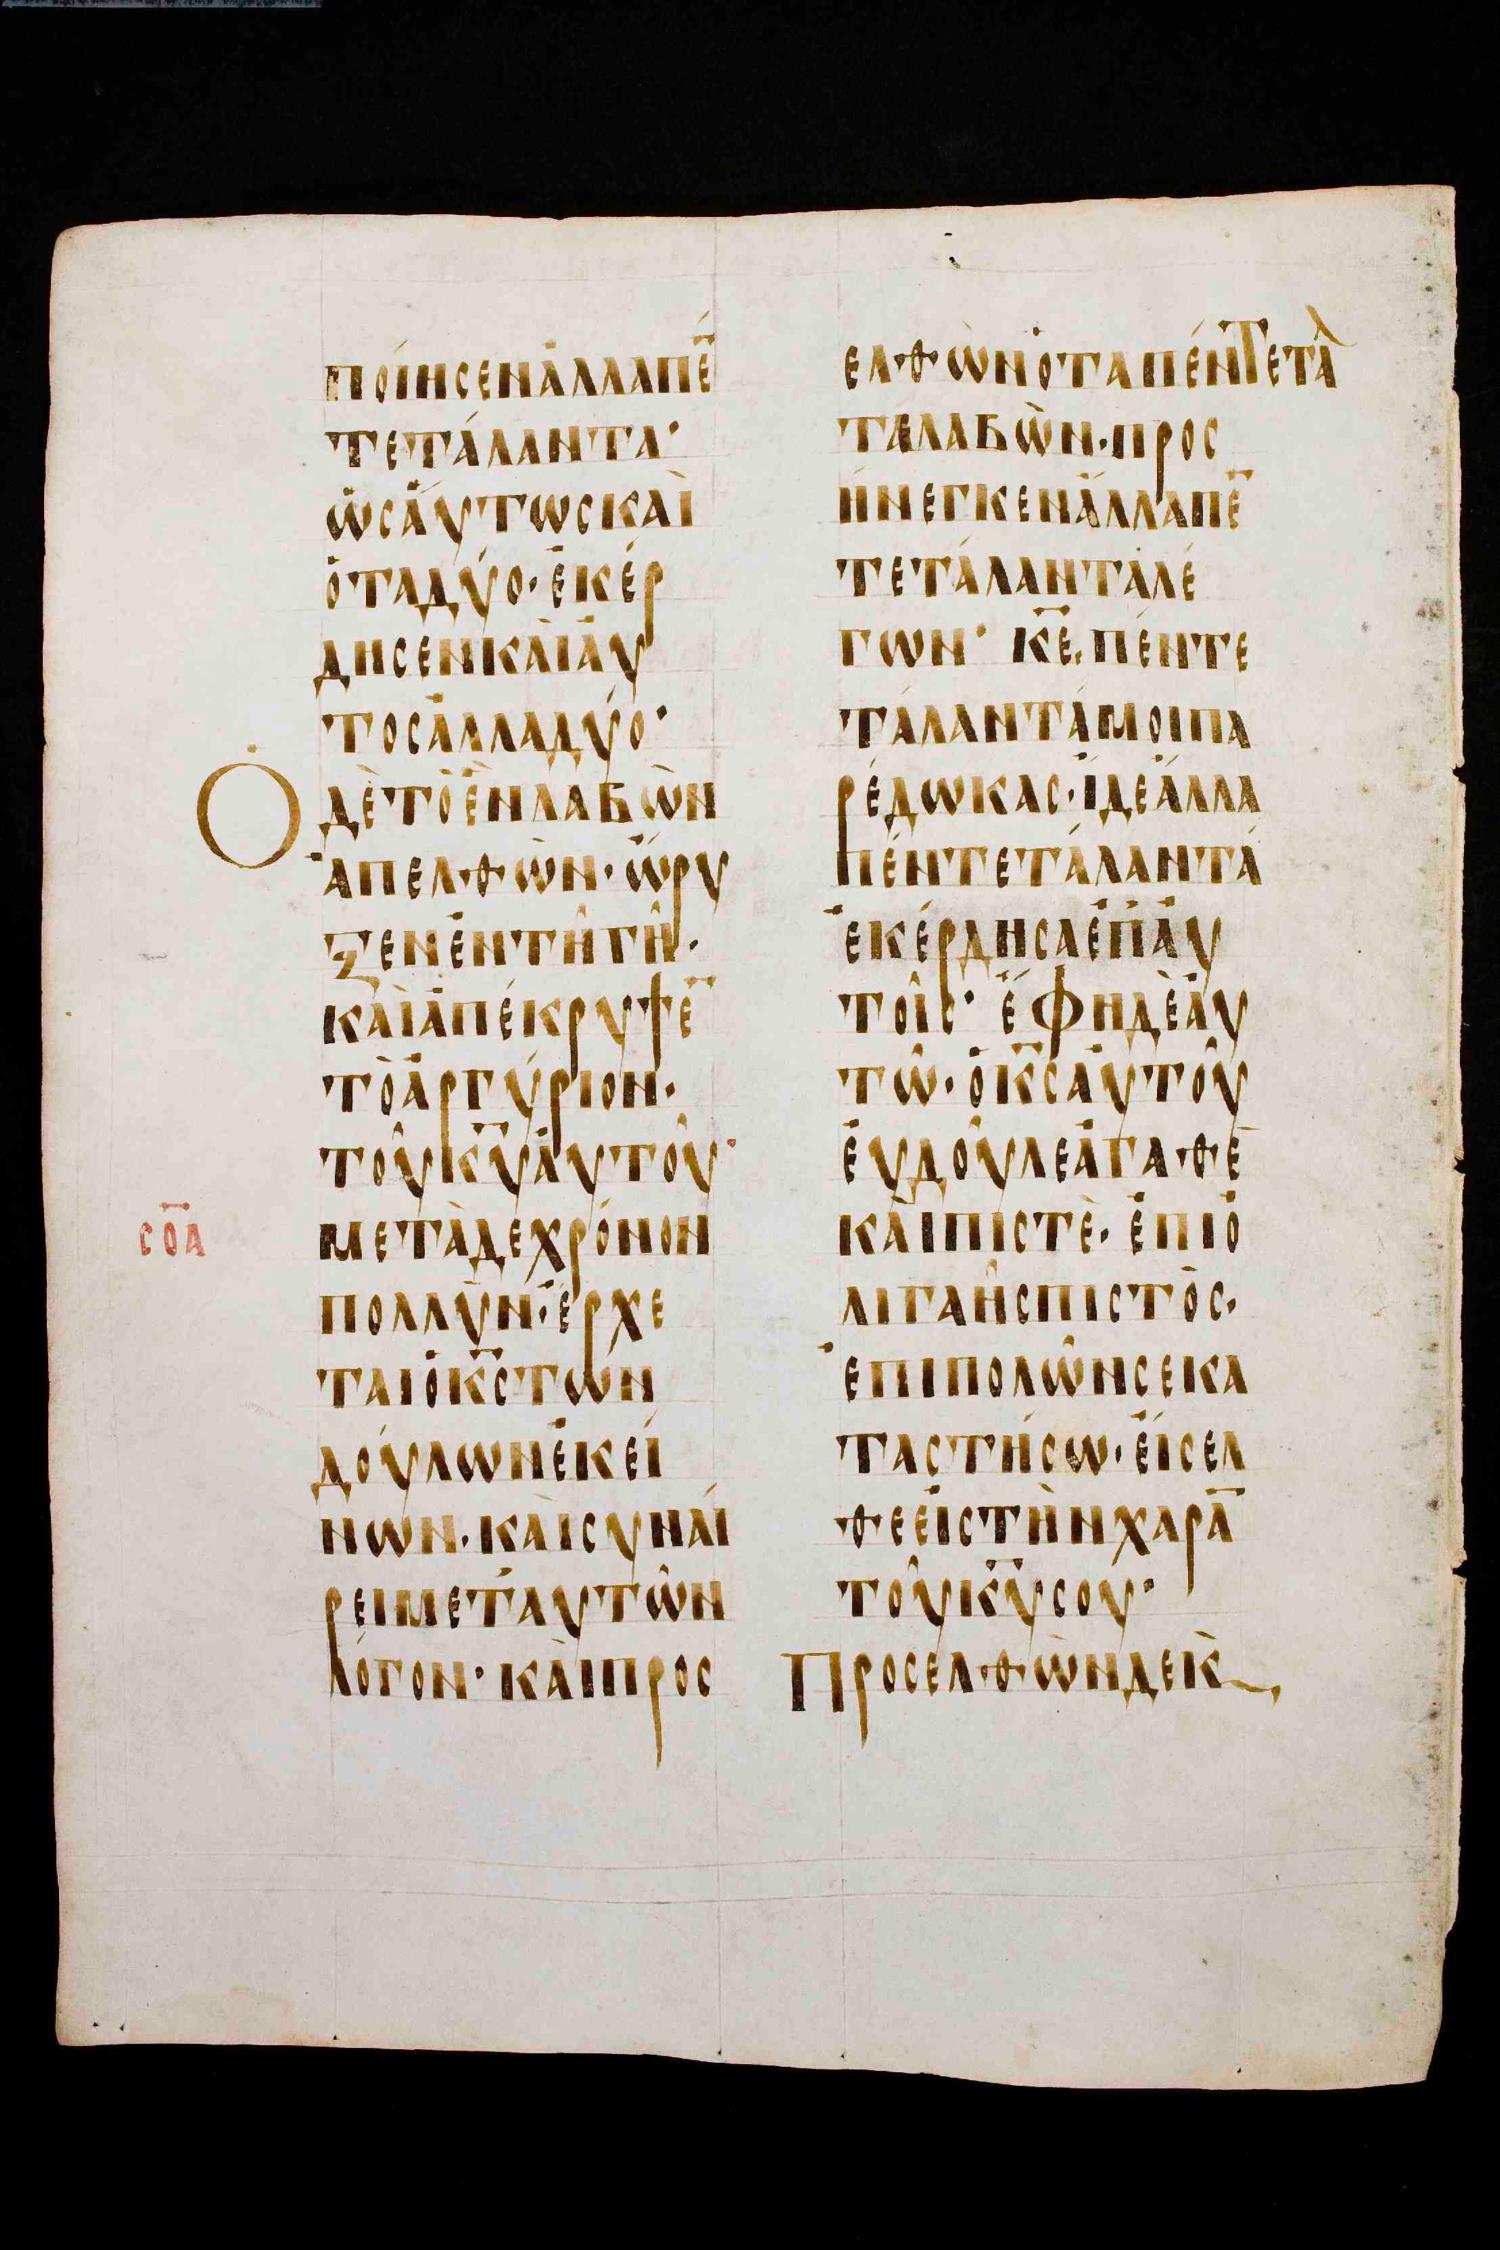 ποίησεν ἄλλα πέ̄
τε τάλαντα·
ὡσαύτως καὶ
ὁ τὰ δύο· ἐκέρ
δησεν καὶ αὐ
τὸς ἄλλα δύο·
Ὁ
δὲ τὸ ἓν λαβὼν
ἀπελθὼν· ὤρυ
ξεν ἐν τῇ γῇ·
καὶ ἀπέκρυψε̄
τὸ ἀργύριον·
τοῦ κ̅υ̅ αὐτοῦ·
σ̅ο̅α̅
μετὰ δε χρόνον
πολλὺν· ἔρχε
ται ὁ κ̅ς̅ τῶν
δούλων ἐκεί
νων· καὶ συναί
ρει μετ' αυτῶν
λόγον· καὶ προς
ελθὼν ὁ τα πέντε τά
ταλαβὼν· προς
ήνεγκεν ἄλλα πέ̄
τε τάλαντα λέ
γων· κ̅ε̅· πέντε
τάλαντά μοι πα
ρέδωκας· ἴδε ἄλλα
πέντε τάλαντα
ἐκέρδησα ἐπ' αὐ
τοῖς· ἔφη δὲ αὐ
τῷ· ὁ κ̅ς̅ αὐτοῦ
εὖ δοῦλε ἀγαθὲ
καὶ πιστὲ· ἐπὶ ὀ
λίγα ἦς πιστὸς·
ἐπι πολῶν σε κα
ταστήσω· εἴσελ
θε εἰς τὴν χαρὰ̄
τοῦ κ̅υ̅ σου·
Προσελθὼν δε κ̀